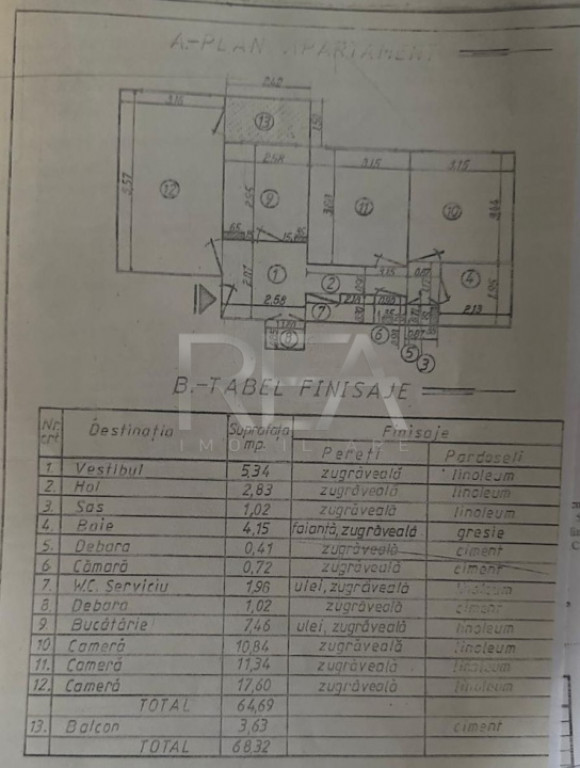 A.-PLAN APARTAMENT
2,42
3,15
13
1,50
2,58
3,15
3,15
5,57
12
2,95
9
3,60
11
10
3,44
65
15
85
2,07
1
2
4
2,58
7
2,13
1,95
8
6
5
3
REA
IMOBILIARE
B.-TABEL FINISAJE
Nr. crt. Destinația Suprafața mp. Finisaje
Pereți Pardoseli
1. Vestibul 5,34 zugrăveală linoleum
2. Hol 2,83 zugrăveală linoleum
3. Sas 1,02 zugrăveală linoleum
4. Baie 4,15 faianță, zugrăveală gresie
5. Debara 0,41 zugrăveală ciment
6 Cămară 0,72 zugrăveală ciment
7. W.C. Serviciu 1,96 ulei, zugrăveală linoleum
8. Debara 1,02 zugrăveală ciment
9 Bucătărie 7,46 ulei, zugrăveală linoleum
10. Cameră 10,84 zugrăveală linoleum
11. Cameră 11,34 zugrăveală linoleum
12. Cameră 17,60 zugrăveală linoleum
TOTAL 64,69
13. Balcon 3,63 ciment
TOTAL 68,32